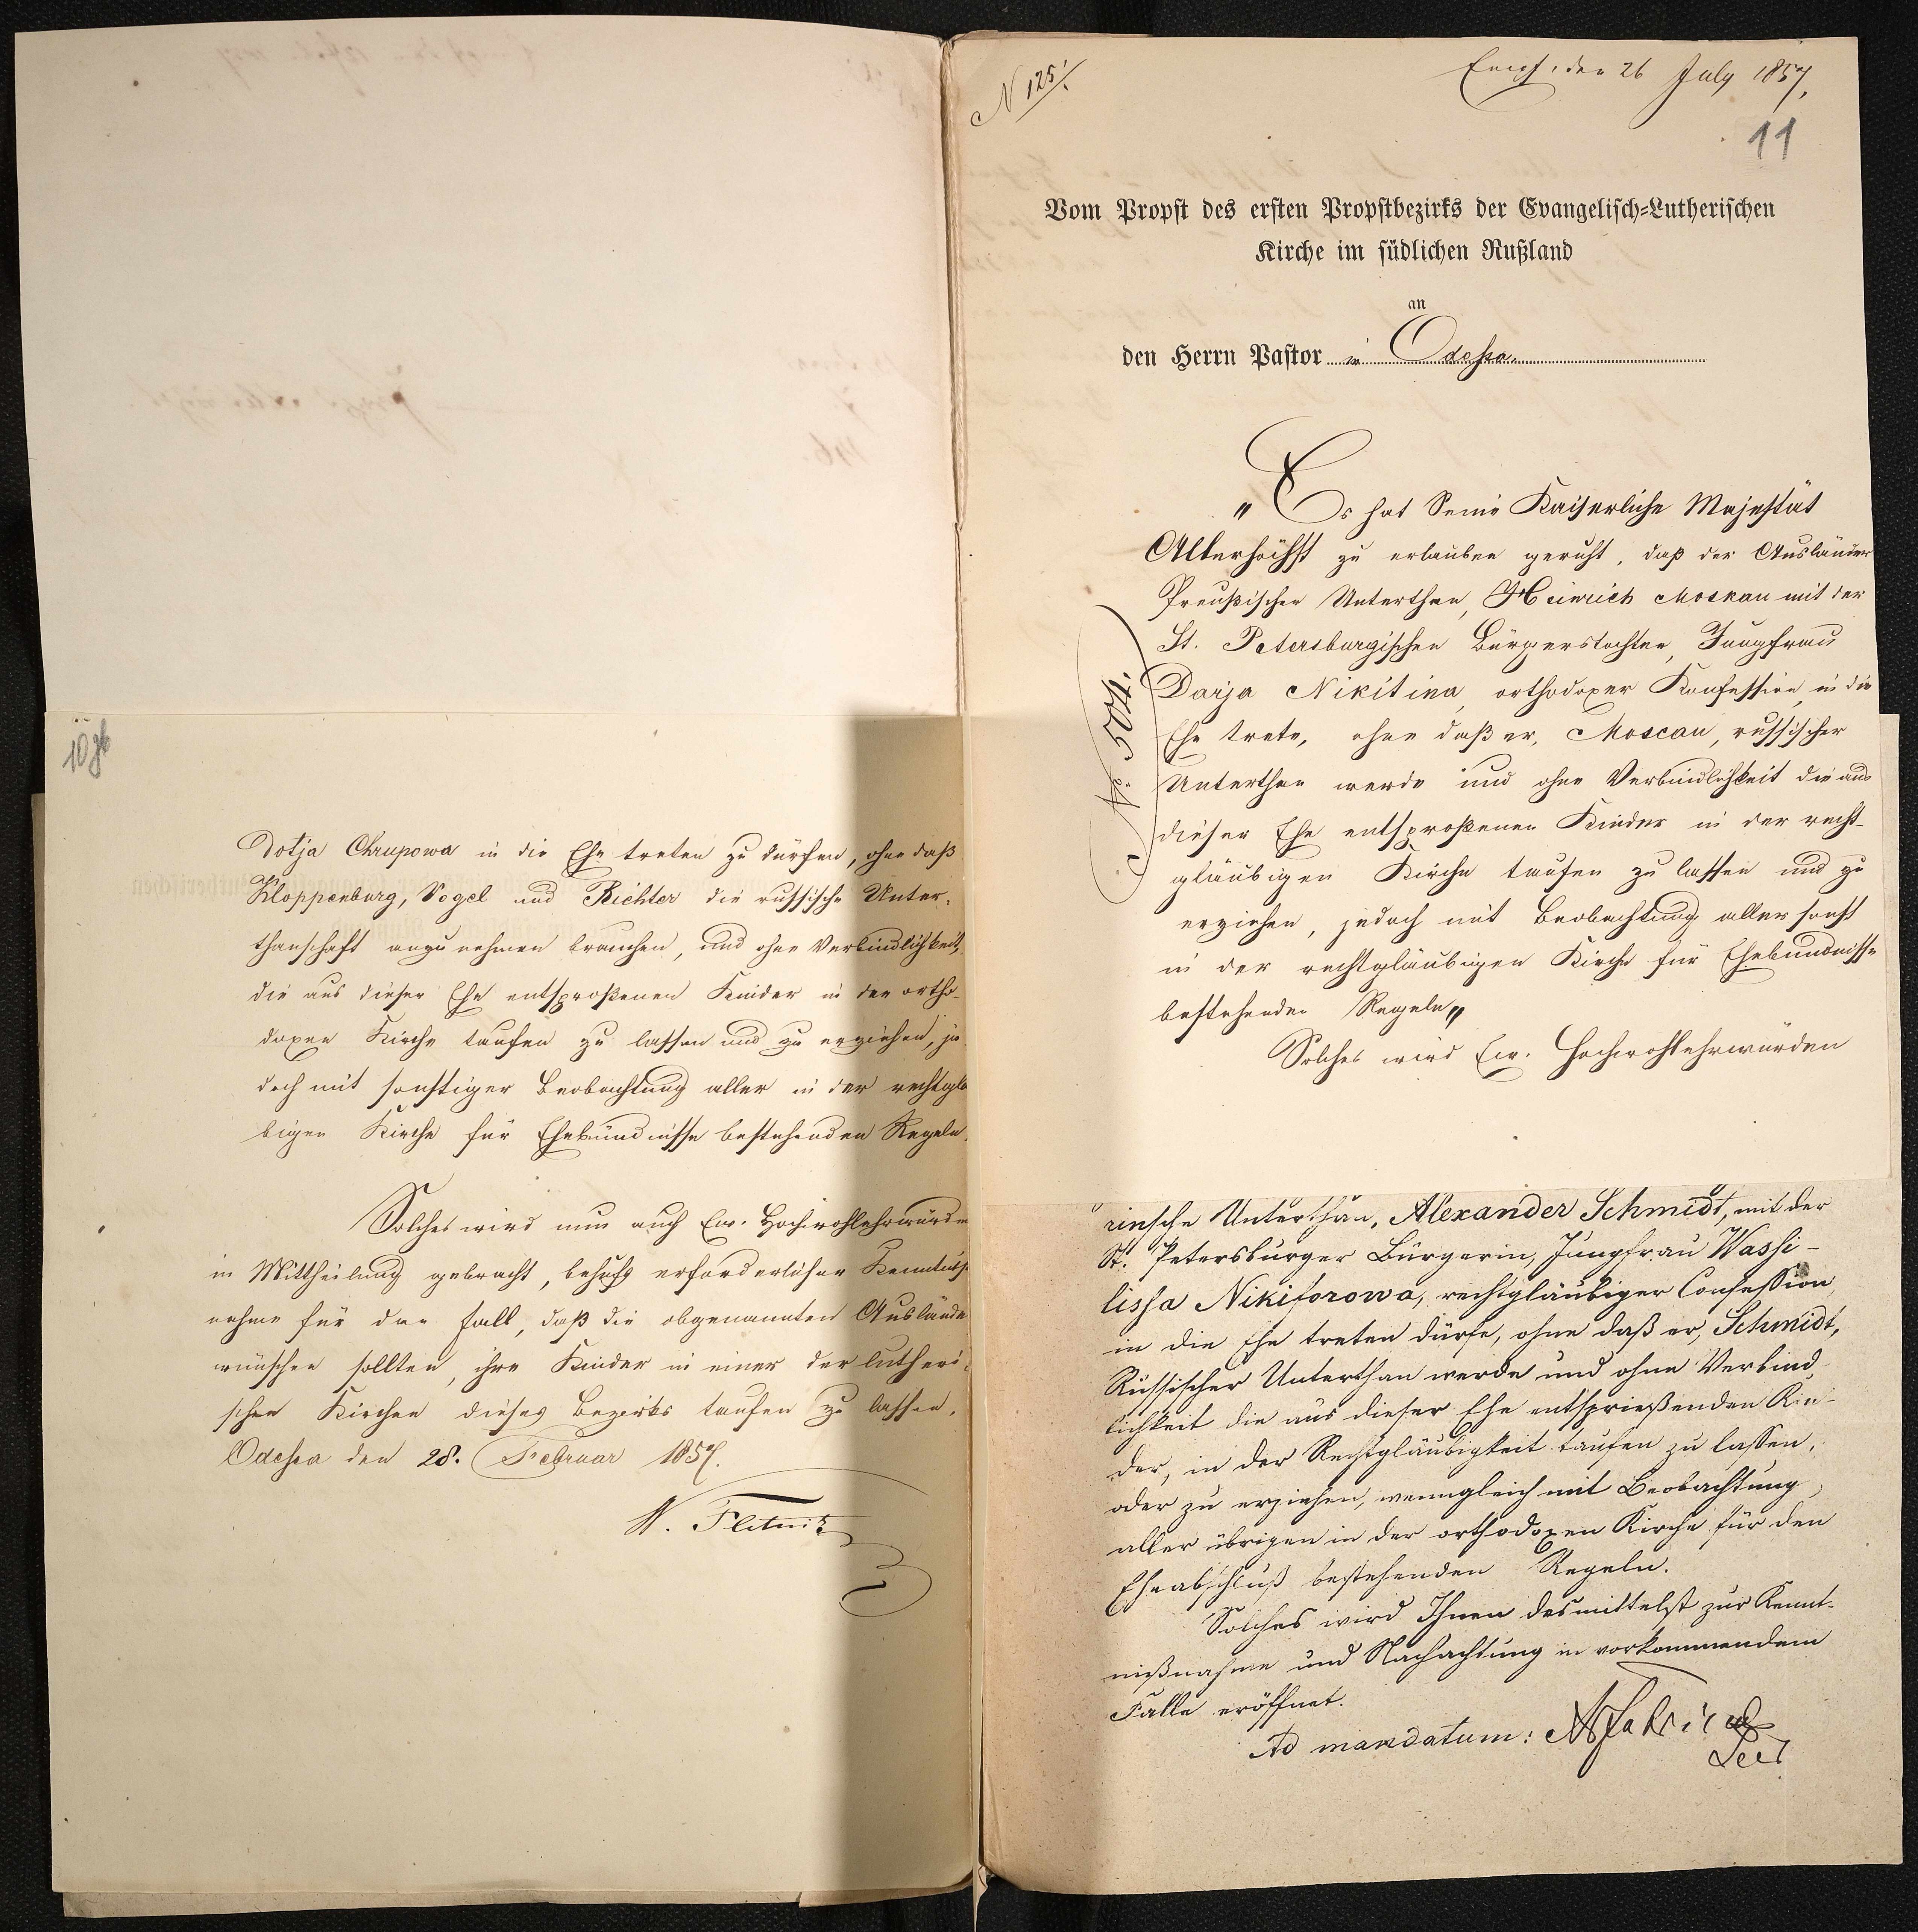 10 ob
Dotja Chrupowa in die Ehe treten zu dürfen, ohne daß
Kloppenburg, Vogel und Richter die russische Unter-
thanschaft anzunehmen brauchen, und ohne Verbindlichkeit,
die aus dieser Ehe entsproßenen Kinder in der ortho-
doxen Kirche taufen zu lassen und zu erziehen, je-
doch mit sonstiger Beobachtung aller in der rechtglä
bigen Kirche für Ehebündnisse bestehenden Regeln.
Solches wird nun auch Ew. Hochwohlehrwürde
in Mittheilung gebracht, behufs erforderlicher Kenntniß
nahme für den Fall, daß die obgenannten Auslände
wünschen sollten, ihre Kinder in einer der lutheri-
schen Kirchen dieses Bezirks taufen zu lassen.
Odessa den 28. Februar 1857.
W. Fletnitz
N 125.
Empf. den 26 July 1857,
11
Vom Propst des ersten Propstbezirks der Evangelisch-Lutherischen
Kirche im südlichen Rußland
an
den Herrn Pastor in Odessa.
N° 504.
„Es hat Seine Kaiserliche Majestät
Allerhöchst zu erlauben geruht, daß der Ausländer
Preußischer Unterthan, Heinrich Moskau mit der
St. Petersburgischen Bürgerstochter, Jungfrau
Darja Nikitina, orthodoxer Konfession, in die
Ehe trete, ohne daß er, Moscau, russischer
Unterthan werde und ohne Verbindlichkeit die aus
dieser Ehe entsproßenen Kinder in der recht-
gläubigen Kirche taufen zu lassen und zu
erziehen, jedoch mit Beobachtung aller sonst
in der rechtgläubigen Kirche für Ehebündnisse
bestehenden Regeln„
Solches wird Ew. Hochwohlehrwürden
rinsche Unterthan, Alexander Schmidt, mit der
St. Petersburger Bürgerin, Jungfrau Wassi-
lissa Nikiforowa, rechtgläubiger Confession,
in die Ehe treten dürfe, ohne daß er, Schmidt,
Russischer Unterthan werde und ohne Verbind-
lichkeit die aus dieser Ehe entsprießenden Kin-
der, in der Rechtgläubigkeit taufen zu lassen,
oder zu erziehen, wenngleich mit Beobachtung
aller übrigen in der orthodoxen Kirche für den
Eheabschluß bestehenden Regeln.
Solches wird Ihnen desmittelst zur Kennt-
nißnahme und Nachachtung in vorkommendem
Falle eröffnet.
Ad mandatum: